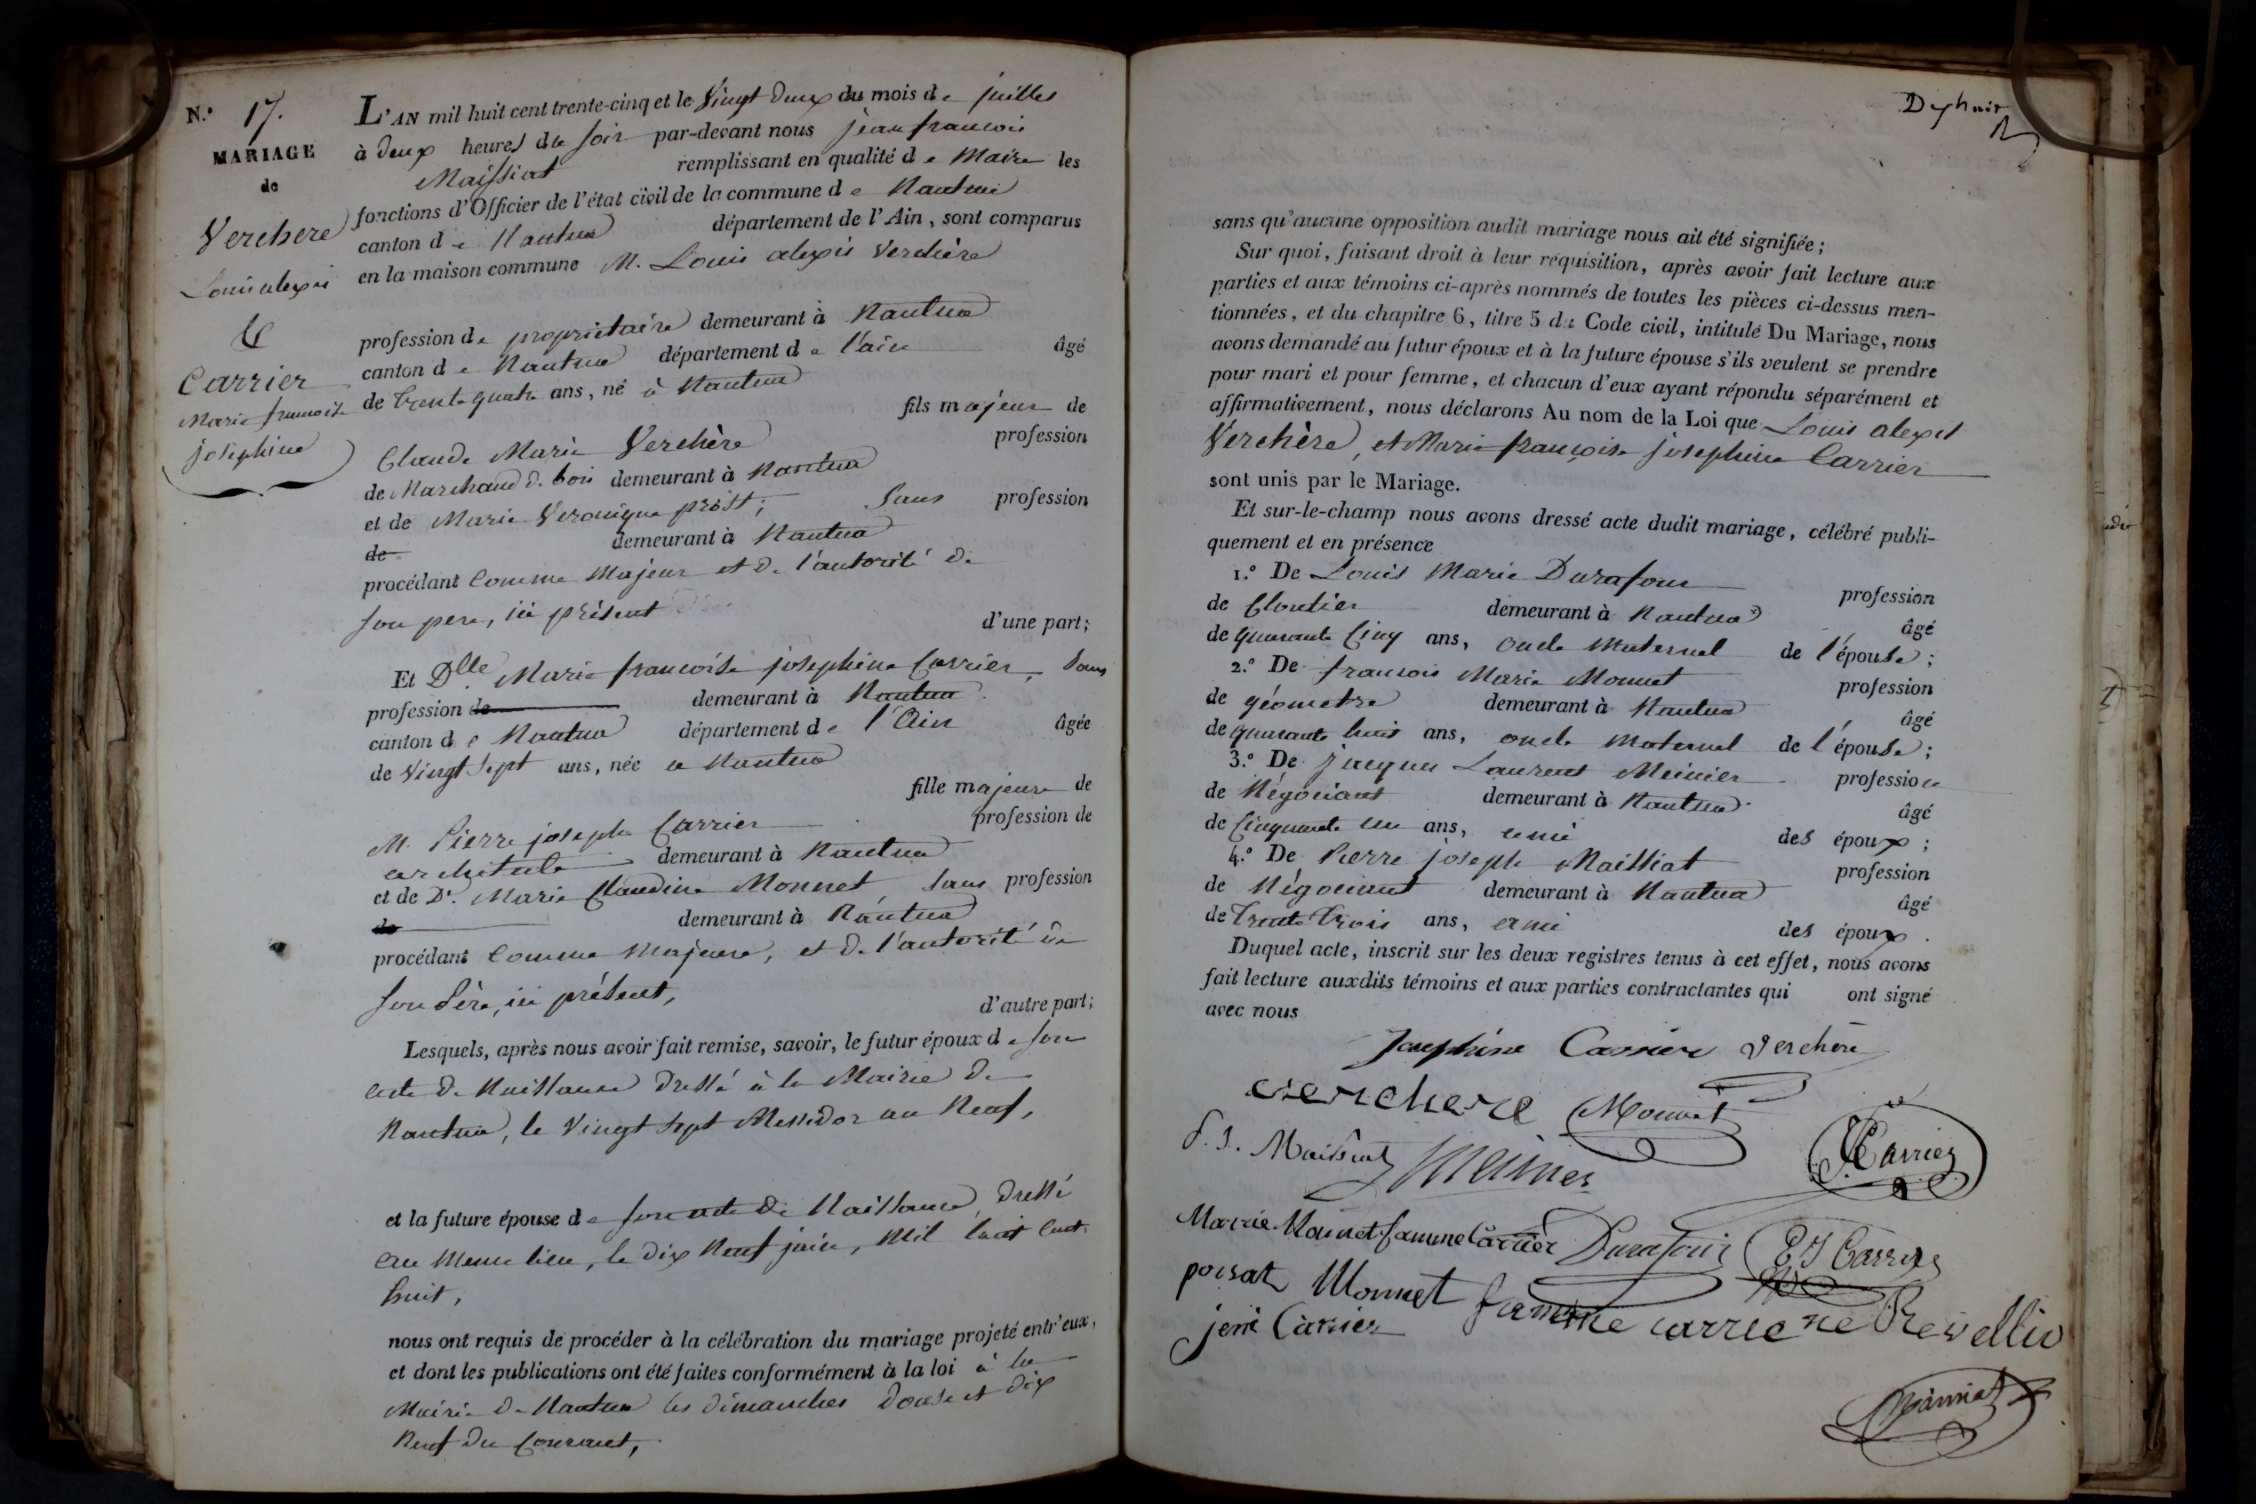 N.° 17.
MARIAGE
de
Verchere
Louis alexis
&
Carrier
Marie francoise
josephine
L'AN mil huit cent trente-cinq et le Vingt deux du mois de juillet
à deux heures du soir par-devant nous jean francois
Maissiat remplissant en qualité de Maire les
fonctions d'Officier de l'état civil de la commune de Nantua
canton de Nantua département de l'Ain, sont comparus
en la maison commune M. Louis alexis Verchère
profession de propriétaire demeurant à Nantua
canton de Nantua département de l'ain âgé
de trente quatre ans, né à Nantua
fils majeur de
Claude Marie Verchère profession
de Marchand de bois demeurant à Nantua
et de Marie Veronique prost; Sans profession
de demeurant à Nantua
procédant Comme Majeur et de l'autorité de
son pere, ici présent
d'une part;
Et Dlle Marie francoise josephine Carrier, Sans
profession de demeurant à Nantua
canton de Nantua département de l'Ain âgée
de Vingt Sept ans, née a Nantua
fille majeure de
M. Pierre joseph Carrier profession de
architecte demeurant à Nantua
et de De. Marie Claudine Monnet Sans profession
de demeurant à Nantua
procédant Comme Majeure, et de l'autorité de
son Père, ici présent,
d'autre part;
Lesquels, après nous avoir fait remise, savoir, le futur époux de son
acte de Naissance dressé à la Mairie de
Nantua, le Vingt Sept Messidor an Neuf,
et la future épouse de son acte de Naissance, dressé
au Meme lieu, le dix Neuf juin, Mil huit Cent
huit,
nous ont requis de procéder à la célébration du mariage projeté entr'eux,
et dont les publications ont été faites conformément à la loi à la
Mairie de Nantua les dimanches douse et dix
Neuf du Courant,
Dix huit
sans qu'aucune opposition audit mariage nous ait été signifiée;
Sur quoi, faisant droit à leur réquisition, après avoir fait lecture aux
parties et aux témoins ci-après nommés de toutes les pièces ci-dessus men-
tionnées, et du chapitre 6, titre 5 du Code civil, intitulé Du Mariage, nous
avons demandé au futur époux et à la future épouse s'ils veulent se prendre
pour mari et pour femme, et chacun d'eux ayant répondu séparément et
affirmativement, nous déclarons Au nom de la Loi que Louis alexis
Verchère, et Marie françoise josephine Carrier
sont unis par le Mariage.
Et sur-le-champ nous avons dressé acte dudit mariage, célébré publi-
quement et en présence
1.° De Louis Marie Durafour profession
de Cloutier demeurant à Nantua âgé
de quarante Cinq ans, oncle maternel de l'épouse;
2.° De francois Marie Monnet profession
de géometre demeurant à Nantua âgé
de quarante huit ans, oncle maternel de l'épouse;
3.° De jacques Laurent Meinier profession
de Négociant demeurant à Nantua âgé
de Cinquante un ans, ami des époux;
4.° De Pierre joseph Maissiat profession
de Négociant demeurant à Nantua âgé
de trente trois ans, ami des époux.
Duquel acte, inscrit sur les deux registres tenus à cet effet, nous avons
fait lecture auxdits témoins et aux parties contractantes qui ont signé
avec nous
Josephine Carrier Verchère
verchere Monnet
P. J. Maissiat Meinier Carrier
Marie Monnet femme Carrier Durafour E J Carrier
poisat Monnet femme carrie ne Revellio
jenie Carrier